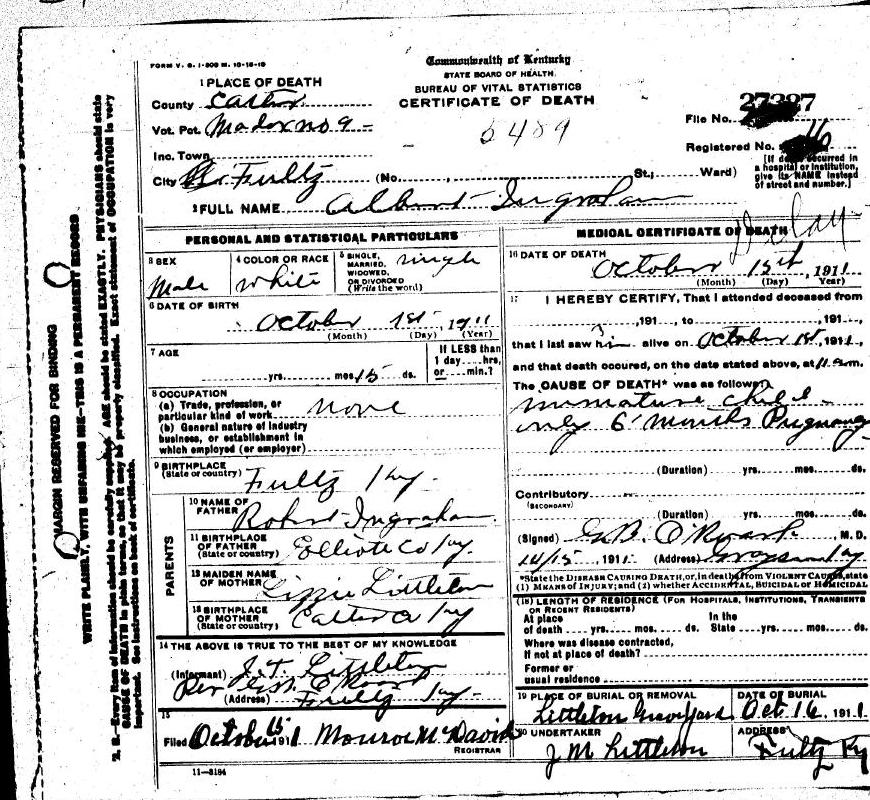 FORM V. S. 1-500 M. 10-18-10
Commonwealth of Kentucky
STATE BOARD OF HEALTH.
BUREAU OF VITAL STATISTICS
CERTIFICATE OF DEATH
1 PLACE OF DEATH
County Carter
Vot. Pct. Madox no 9 -
Inc. Town
City Fultz (No. , St.; Ward)
6489
File No. 27327
Registered No.
[If death occurred in
a hospital or institution,
give its NAME instead
of street and number.]
2 FULL NAME Albert Ingraham
PERSONAL AND STATISTICAL PARTICULARS
3 SEX
Male
4 COLOR OR RACE
White
5 SINGLE, MARRIED, WIDOWED, OR DIVORCED (Write the word)
single
6 DATE OF BIRTH
October 1st, 1911
(Month) (Day) (Year)
7 AGE
yrs. mos. 15 ds.
If LESS than
1 day....hrs,
or....min.?
8 OCCUPATION
(a) Trade, profession, or
particular kind of work None
(b) General nature of industry
business, or establishment in
which employed (or employer)
9 BIRTHPLACE
(State or country) Fultz Ky.
PARENTS
10 NAME OF
FATHER Robert Ingraham
11 BIRTHPLACE
OF FATHER
(State or country) Elliott Co Ky.
12 MAIDEN NAME
OF MOTHER Lizzie Littleton
13 BIRTHPLACE
OF MOTHER
(State or country) Carter Co Ky
14 THE ABOVE IS TRUE TO THE BEST OF MY KNOWLEDGE
(Informant) J.T. Littleton
Per
(Address) Fultz Ky-
15
Filed October 15 1911 Monroe McDavid
REGISTRAR
11-3184
MEDICAL CERTIFICATE OF DEATH
Delay
16 DATE OF DEATH
October 15th, 1911
(Month) (Day) Year)
17 I HEREBY CERTIFY, That I attended deceased from
,191 , to ,191 ,
that I last saw him alive on October 1st, 1911,
and that death occured, on the date stated above, at 11 am.
The CAUSE OF DEATH* was as follows:
immature child -
only 6 months Pregnancy
(Duration) yrs. mos. ds.
Contributory
(SECONDARY)
(Duration) yrs. mos. ds.
(Signed) G.B. O'Roark, M. D.
10/15, 1911 (Address) Grayson Ky
*State the DISEASE CAUSING DEATH, or, in deaths from VIOLENT CAUSES, state
(1) MEANS OF INJURY; and (2) whether ACCIDENTAL, SUICIDAL or HOMICIDAL
(18) LENGTH OF RESIDENCE (FOR HOSPITALS, INSTITUTIONS, TRANSIENTS
OR RECENT RESIDENTS)
At place of death yrs. mos. ds. In the State yrs. mos. ds.
Where was disease contracted,
If not at place of death?
Former or
usual residence
19 PLACE OF BURIAL OR REMOVAL
Littleton Graveyard
DATE OF BURIAL
Oct 16, 1911
20 UNDERTAKER
J M Littleton
ADDRESS
Fultz Ky
MARGIN RESERVED FOR BINDING
WRITE PLAINLY, WITH UNFADING INK—THIS IS A PERMANENT RECORD
N. B.—Every item of information should be carefully supplied. AGE should be stated EXACTLY. PHYSICIANS should state
CAUSE OF DEATH in plain terms, so that it may be properly classified. Exact statement of OCCUPATION is very
important. See instructions on back of certificate.